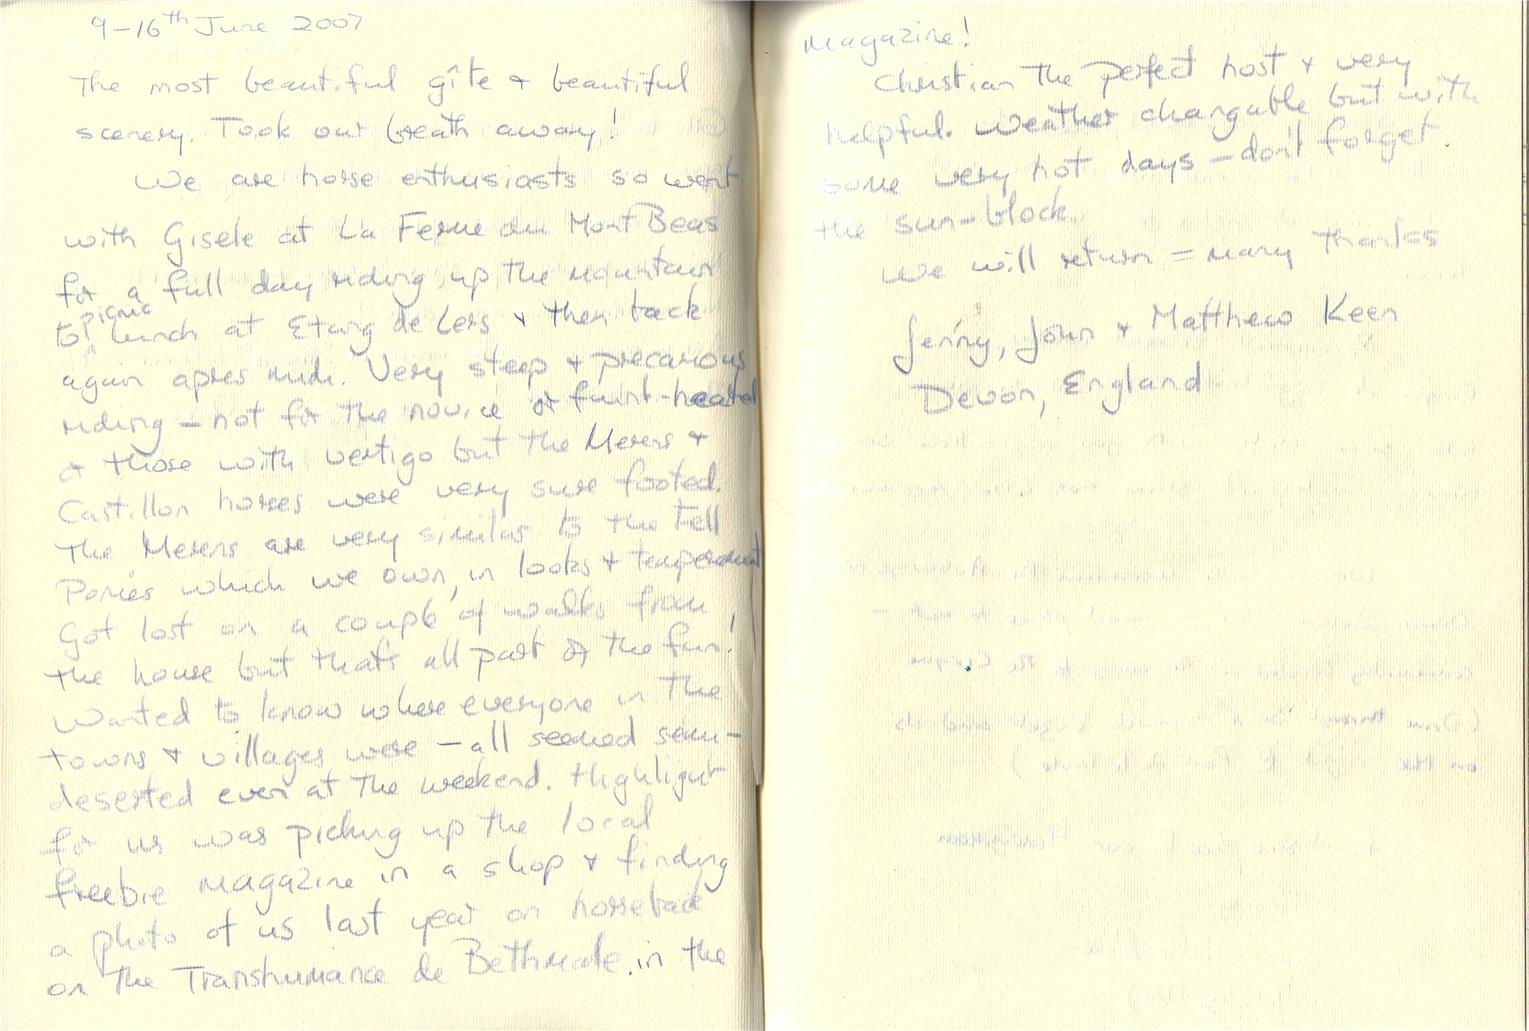 9-16th June 2007
The most beautiful gîte + beautiful
scenery. Took our breath away!
We are horse enthusiasts so went
with Gisele at La Ferme du Mont Beas
for a full day riding up the mountain
to picnic lunch at Etang de Lers + then back
again apres midi. Very steep + precarious
riding - not for the novice or faint-hearted
or those with vertigo but the Merens +
Castillon horses were very sure footed.
The Merens are very similar to the Fell
Ponies which we own, in looks + temperament
Got lost on a couple of walks from
the house but that's all part of the fun!
Wanted to know where everyone in the
towns + villages were - all seemed semi-
deserted even at the weekend. Highlight
for us was picking up the local
freebie magazine in a shop + finding
a photo of us last year on horseback
on the Transhumance de Bethmale, in the
magazine!
Christian the perfect host + very
helpful. Weather changable but with
some very hot days - don't forget
the sun-block.
We will return = many thanks
Jenny, John + Matthew Keen
Devon, England